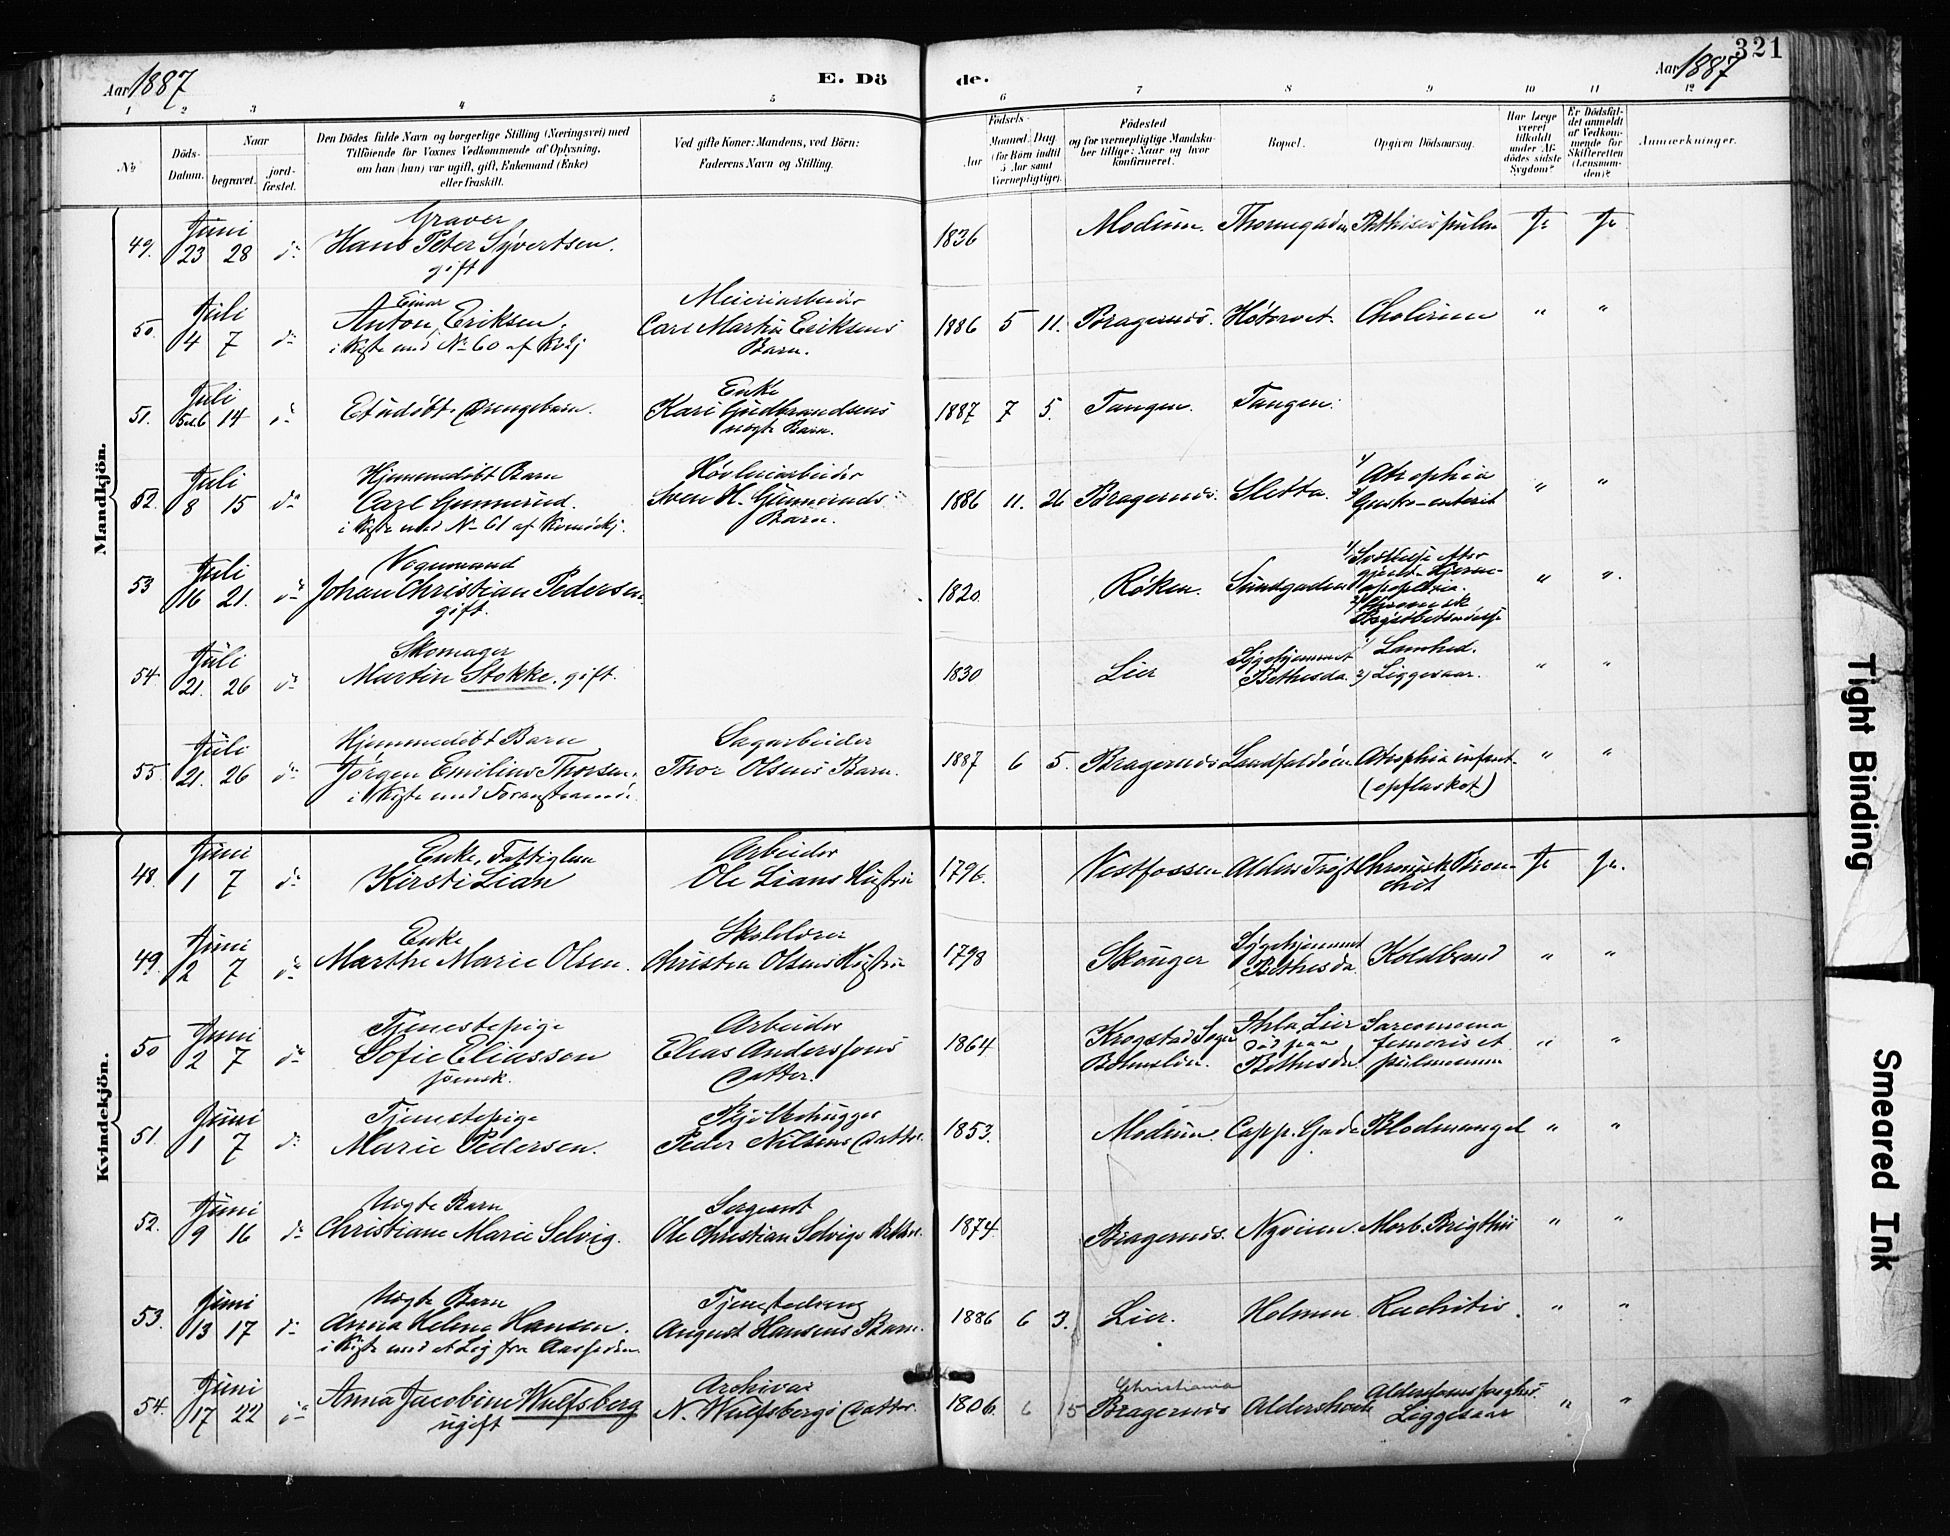 321
Aar 1887
E. Dö
de.
Aar 1887
1 2 3 4 5 6 7 8 9 10 11 12
No Döds-Datum. Naar begravet. jordfæstet. Den Dödes fulde Navn og borgerlige Stilling (Næringsvei) med Tilföiende for Voxnes Vedkommende af Oplysning, om han (hun) var ugift, gift, Enkemand (Enke) eller fraskilt. Ved gifte Koner: Mandens, ved Börn: Faderens Navn og Stilling. Födsels- Aar Maaned. Dag (for Börn indtil 5 Aar samt Værnepligtige). Födested og for værnepligtige Mandskaber tillige: Naar og hvor konfirmeret. Bopæl. Opgiven Dödsaarsag. Har Læge været tilkaldt under Afdödes sidste Sygdom? Er Dödsfaldet anmeldt af Vedkommende for Skifteretten (Lensmanden)? Anmærkninger.
Mandkjön.
49. Juni 23 28 do Graver Hans Peter Syvertsen. gift 1836 Modum. Phthisis pulm Ja Ja
50. Juli 4 7 do Anton Einar Eriksen. i Kiste med No 60 af Kvkj Meieriarbeider Carl Martin Eriksens Barn. 1886 5 11. Bragernes. Høtorvet. Cholerine " "
51. Juli 14 do Et udøbt Drengebarn. Enke Kari Gudbrandsens uægte Barn. 1887 7 5. Tangen. Tangen.
52. Juli 8 15 do Hjemmedøbt Barn Carl Gunnerud. i Kiste med No 61 af Kvindekj. Høvleriarbeider Sven H. Gunneruds Barn. 1886 11. 26 Bragernes. Sletta. 1) Atrophia 2) Gastro-enterit " "
53 Juli 16 21. do Vognmand Johan Christian Pedersen. gift. 1820. Røken. Sundgaden " "
54. Juli 21. 26 do Skomager Martin Stokke. gift. 1830 Lier Sygehjemmet Bethesda. 1) Lamhed. 2) Liggesaar. " "
55. Juli 21. 26 do Hjemmedøbt Barn Jørgen Emilius Thorsen. Sagarbeider Thor Olsens Barn. 1887 6 5. Bragernes Landfaldøen Atrophia infant. (opflasket) " "
Kvindekjön.
48. Juni 1 7 do Enke, Fattiglem Kirsti Lian Arbeider Ole Lians Hustru 1796. Vestfossen Alders Trøst Chronisk Bronchit Ja Ja.
49. Juni 2 7 do Enke Marthe Marie Olsen. Skolelærer Christen Olsens Hustru 1798 Skouger Sygehjemmet Bethesda Koldbrand " "
50 Juni 2 7 do Tjenestepige Sofie Eliassen svensk. Arbeider Elias Anderssons Datter. 1864 Krogstad Sogn Bohuslen. Lier Død paa Bethesda Sarcomoma femoris et pulmonum " "
51. Juni 1 7 do Tjenestepige Marie Pedersen. Peder Nilsens Datter. 1853. Modum. Capp. Gade Blodmangel " "
52. Juni 9 16 do Uægte Barn Christiane Marie Selvig. Sergeant Ole Christian Selvigs Datter. 1874. Bragernes. Nyveien. Morb. Brigthii " "
53. Juni 13 17 do Uægte Barn Anna Helene Hansen. i Kiste med et Lig fra Tjenestedreng August Hansens Barn. 1886 6 3. Lier. Holmen. Rachitis " "
54. Juni 17 22 do Anna Jacobine Wulfsberg ugift Archivar N. Wulfsbergs Datter. 1806. 6 15 Christiania Bragernes Liggesaar " "
Tight Binding
Smeared Ink